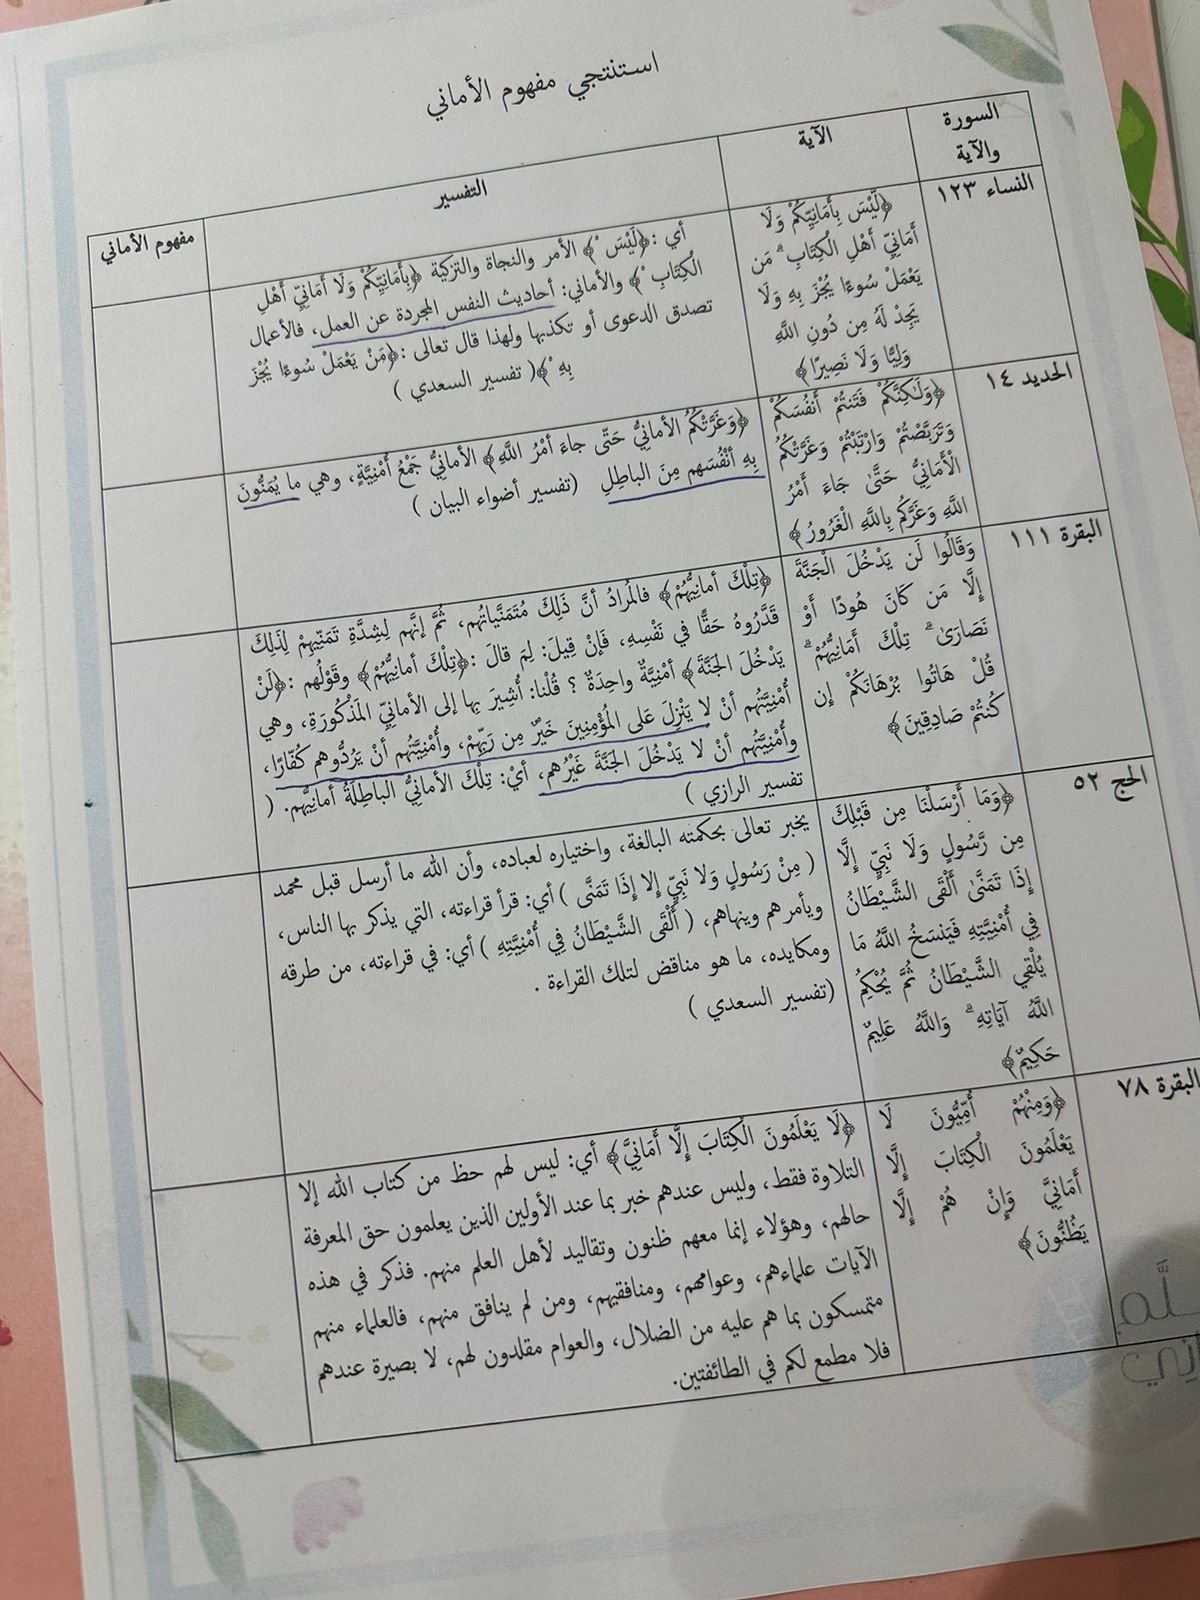 استنتجي مفهوم الأماني
السورة
والآية
الآية
التفسير
مفهوم الأماني
النساء ١٢٣
﴿لَّيْسَ بِأَمَانِيِّكُمْ وَلَا
أَمَانِيِّ أَهْلِ الْكِتَابِ ۗ مَن
يَعْمَلْ سُوءًا يُجْزَ بِهِ وَلَا
يَجِدْ لَهُ مِن دُونِ اللَّهِ
وَلِيًّا وَلَا نَصِيرًا﴾
أي :﴿لَيْسَ ْ﴾ الأمر والنجاة والتزكية ﴿بِأَمَانِيِّكُمْ وَلَا أَمَانِيِّ أَهْلِ
الْكِتَابِ ْ﴾ والأماني: أحاديث النفس المجردة عن العمل، فالأعمال
تصدق الدعوى أو تكذبها ولهذا قال تعالى :﴿مَنْ يَعْمَلْ سُوءًا يُجْزَ
بِهِ ْ﴾( تفسير السعدي )
الحديد ١٤
﴿وَلَٰكِنَّكُمْ فَتَنتُمْ أَنفُسَكُمْ
وَتَرَبَّصْتُمْ وَارْتَبْتُمْ وَغَرَّتْكُمُ
الْأَمَانِيُّ حَتَّىٰ جَاءَ أَمْرُ
اللَّهِ وَغَرَّكُم بِاللَّهِ الْغَرُورُ﴾
﴿وَغَرَّتْكُمُ الأمانِيُّ حَتّى جاءَ أمْرُ اللَّهِ﴾ الأمانِيُّ جَمْعُ أُمْنِيَّةٍ، وهي ما يُمَنُّونَ
بِهِ أنْفُسَهم مِنَ الباطِلِ (تفسير أضواء البيان )
البقرة ١١١
وَقَالُوا لَن يَدْخُلَ الْجَنَّةَ
إِلَّا مَن كَانَ هُودًا أَوْ
نَصَارَىٰ ۗ تِلْكَ أَمَانِيُّهُمْ ۗ
قُلْ هَاتُوا بُرْهَانَكُمْ إِن
كُنتُمْ صَادِقِينَ﴾
﴿تِلْكَ أمانِيُّهُمْ﴾ فالمُرادُ أنَّ ذَلِكَ مُتَمَنَّياتُهم، ثُمَّ إنَّهم لِشِدَّةِ تَمَنِّيهِمْ لِذَلِكَ
قَدَّرُوهُ حَقًّا في نَفْسِهِ، فَإنْ قِيلَ: لِمَ قالَ :﴿تِلْكَ أمانِيُّهُمْ﴾ وقَوْلُهم :﴿لَنْ
يَدْخُلَ الجَنَّةَ﴾ أُمْنِيَّةٌ واحِدَةٌ ؟ قُلْنا: أُشِيرَ بِها إلى الأمانِيِّ المَذْكُورَةِ، وهي
أُمْنِيَّتُهم أنْ لا يَنْزِلَ عَلى المُؤْمِنِينَ خَيْرٌ مِن رَبِّهِمْ، وأُمْنِيَّتُهم أنْ يَرُدُّوهم كُفّارًا،
وأُمْنِيَّتُهم أنْ لا يَدْخُلَ الجَنَّةَ غَيْرُهم، أيْ: تِلْكَ الأمانِيُّ الباطِلَةُ أمانِيُّهم. (
تفسير الرازي )
الحج ٥٢
﴿وَمَا أَرْسَلْنَا مِن قَبْلِكَ
مِن رَّسُولٍ وَلَا نَبِيٍّ إِلَّا
إِذَا تَمَنَّىٰ أَلْقَى الشَّيْطَانُ
فِي أُمْنِيَّتِهِ فَيَنسَخُ اللَّهُ مَا
يُلْقِي الشَّيْطَانُ ثُمَّ يُحْكِمُ
اللَّهُ آيَاتِهِ ۗ وَاللَّهُ عَلِيمٌ
حَكِيمٌ﴾
يخبر تعالى بحكمته البالغة، واختياره لعباده، وأن الله ما أرسل قبل محمد
( مِنْ رَسُولٍ وَلا نَبِيٍّ إِلا إِذَا تَمَنَّى ) أي: قرأ قراءته، التي يذكر بها الناس،
ويأمرهم وينهاهم، ( أَلْقَى الشَّيْطَانُ فِي أُمْنِيَّتِهِ ) أي: في قراءته، من طرقه
ومكايده، ما هو مناقض لتلك القراءة .
(تفسير السعدي )
البقرة ٧٨
﴿وَمِنْهُمْ أُمِّيُّونَ لَا
يَعْلَمُونَ الْكِتَابَ إِلَّا
أَمَانِيَّ وَإِنْ هُمْ إِلَّا
يَظُنُّونَ﴾
﴿لَا يَعْلَمُونَ الْكِتَابَ إِلَّا أَمَانِيَّ﴾ أي: ليس لهم حظ من كتاب الله إلا
التلاوة فقط، وليس عندهم خبر بما عند الأولين الذين يعلمون حق المعرفة
حالهم، وهؤلاء إنما معهم ظنون وتقاليد لأهل العلم منهم. فذكر في هذه
الآيات علماءهم، وعوامهم، ومنافقيهم، ومن لم ينافق منهم، فالعلماء منهم
متمسكون بما هم عليه من الضلال، والعوام مقلدون لهم، لا بصيرة عندهم
فلا مطمع لكم في الطائفتين.